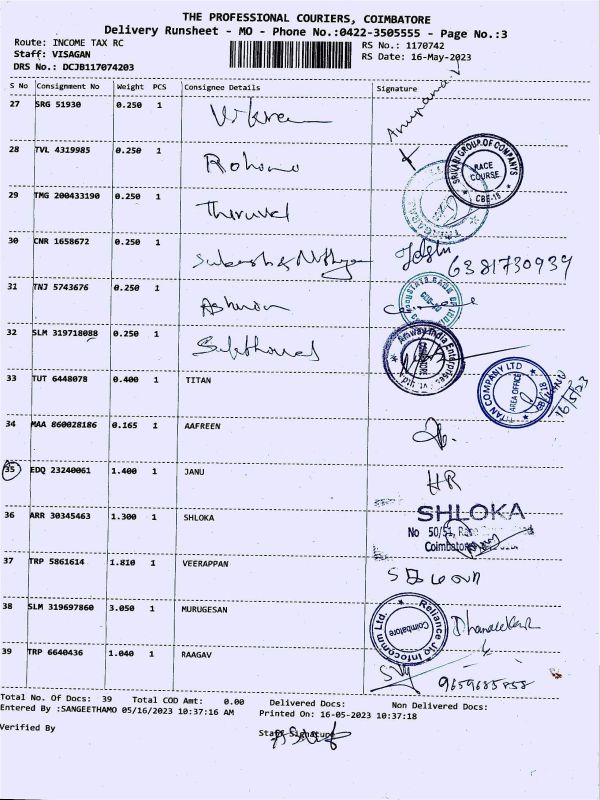 THE PROFESSIONAL COURIERS, COIMBATORE
Delivery Runsheet - MO - Phone No.:0422-3505555 - Page No.:3
Route: INCOME TAX RC RS No.: 1170742
Staff: VISAGAN RS Date: 16-May-2023
DRS No.: DCJB117074203
S No Consignment No Weight PCS Consignee Details Signature
27 SRG 51930 0.250 1 Vikram Anupama
28 TVL 4319985 0.250 1
SRIVARI GROUP OF COMPANYS RACE COURSE CBE-18
29 TMG 200433190 0.250 1
30 CNR 1658672 0.250 1 6381730939
31 TNJ 5743676 0.250 1 Ashwin
32 SLM 319718088 0.250 1
Amway India Enterprises Pvt. Ltd.
33 TUT 6448078 0.400 1 TITAN
TITAN COMPANY LTD AREA OFFICE
16/5/23
34 MAA 860028186 0.165 1 AAFREEN
35 EDQ 23240061 1.400 1 JANU HR
36 ARR 30345463 1.300 1 SHLOKA SHLOKA
No 50/51,
Coimbatore
37 TRP 5861614 1.810 1 VEERAPPAN
38 SLM 319697860 3.050 1 MURUGESAN
Reliance Jio Infocomm Ltd. Coimbatore
39 TRP 6640436 1.040 1 RAAGAV
9659685858
Total No. Of Docs: 39 Total COD Amt: 0.00 Delivered Docs: Non Delivered Docs:
Entered By :SANGEETHAMO 05/16/2023 10:37:16 AM Printed On: 16-05-2023 10:37:18
Verified By Staff Signature